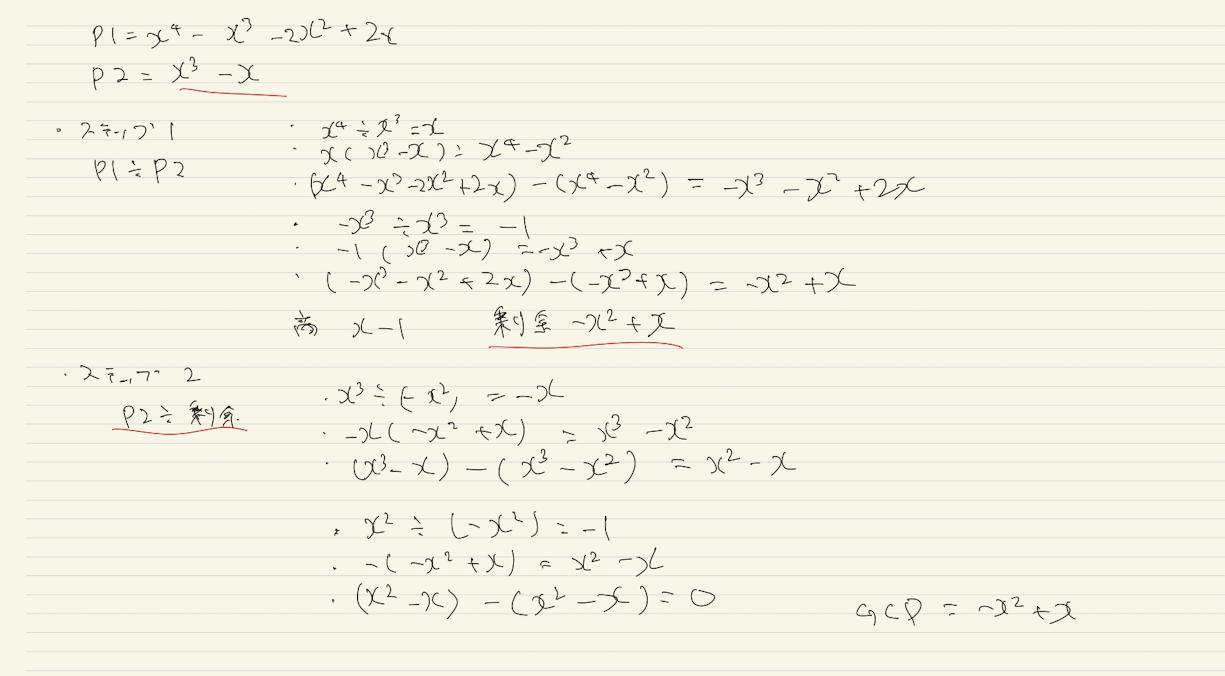 P1 = x⁴ - x³ - 2x² + 2x
P2 = x³ - x
・ステップ1
P1 ÷ P2
・x⁴ ÷ x³ = x
・x(x³ - x) = x⁴ - x²
・(x⁴ - x³ - 2x² + 2x) - (x⁴ - x²) = -x³ - x² + 2x
・-x³ ÷ x³ = -1
・-1(x³ - x) = -x³ + x
・(-x³ - x² + 2x) - (-x³ + x) = -x² + x
x - 1 剰余 -x² + x
・ステップ2
P2 ÷ 剰余
・x³ ÷ (-x²) = -x
・-x(-x² + x) = x³ - x²
・(x³ - x) - (x³ - x²) = x² - x
・x² ÷ (-x²) = -1
・-(-x² + x) = x² - x
・(x² - x) - (x² - x) = 0
GCD = -x² + x